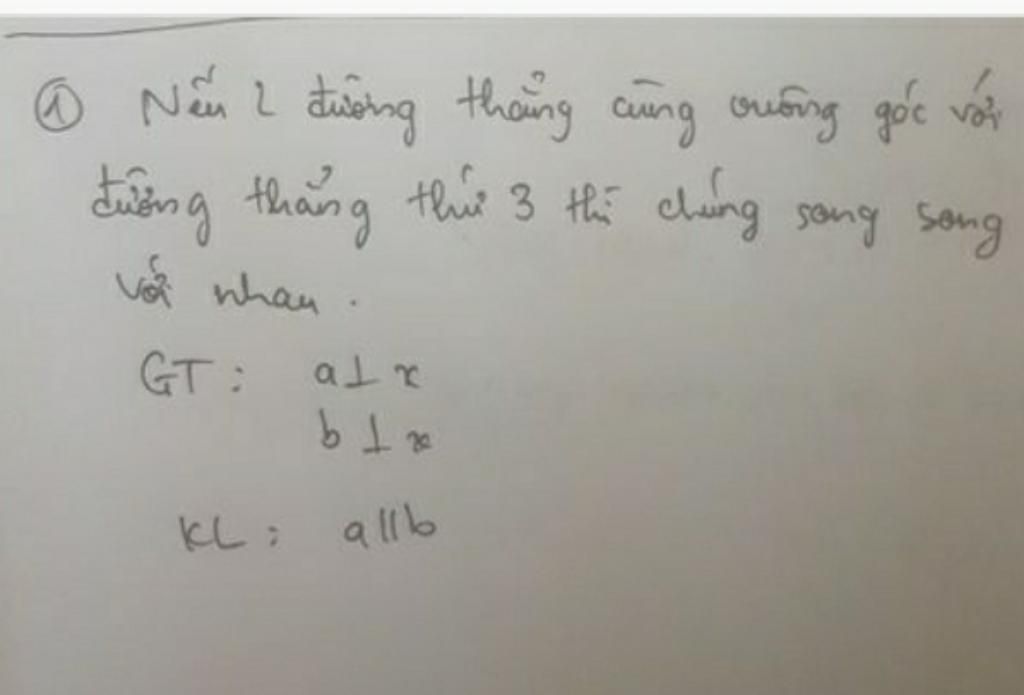 ① Nếu 2 đường thẳng cùng vuông góc với
đường thẳng thứ 3 thì chúng song song
với nhau.
GT: a⊥x
b⊥x
KL: a//b